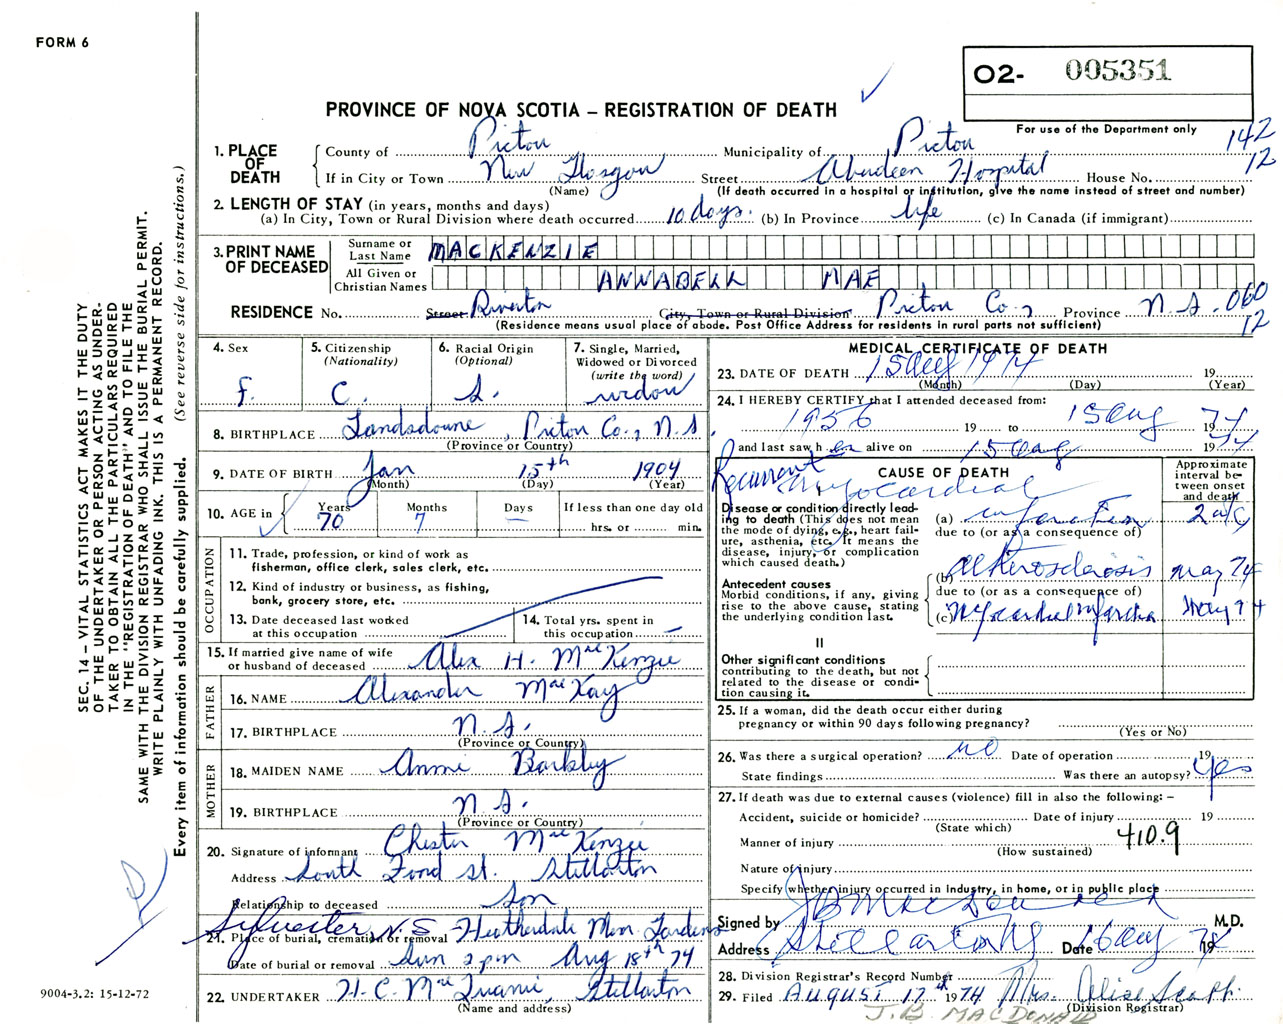 FORM 6
O2- 005351
PROVINCE OF NOVA SCOTIA – REGISTRATION OF DEATH
For use of the Department only
1. PLACE OF DEATH
County of Pictou Municipality of Pictou 142
If in City or Town New Glasgow Street Aberdeen Hospital House No. 12
(Name) (If death occurred in a hospital or institution, give the name instead of street and number)
2. LENGTH OF STAY (in years, months and days)
(a) In City, Town or Rural Division where death occurred 10 days. (b) In Province life (c) In Canada (if immigrant)
3. PRINT NAME OF DECEASED
Surname or Last Name MACKENZIE
All Given or Christian Names ANNABELL MAE
RESIDENCE No. Street Riverton City, Town or Rural Division Pictou Co., Province N.S. 060
(Residence means usual place of abode. Post Office Address for residents in rural parts not sufficient) 12
4. Sex
F.
5. Citizenship (Nationality)
C.
6. Racial Origin (Optional)
S.
7. Single, Married, Widowed or Divorced (write the word)
widow
8. BIRTHPLACE Landsdowne, Pictou Co., N.S.
(Province or Country)
9. DATE OF BIRTH Jan 15th 1904
(Month) (Day) (Year)
10. AGE in Years Months Days If less than one day old
70 7 — hrs. or min.
OCCUPATION
11. Trade, profession, or kind of work as fisherman, office clerk, sales clerk, etc.
12. Kind of industry or business, as fishing, bank, grocery store, etc.
13. Date deceased last worked at this occupation
14. Total yrs. spent in this occupation —
15. If married give name of wife or husband of deceased Alex H. MacKenzie
FATHER
16. NAME Alexander MacKay
17. BIRTHPLACE N.S.
(Province or Country)
MOTHER
18. MAIDEN NAME Annie Barkley
19. BIRTHPLACE N.S.
(Province or Country)
20. Signature of informant Chester MacKenzie
Address South Foord St. Stellarton
Relationship to deceased Son
Sylvester, N.S.
21. Place of burial, cremation or removal Heatherdale Mem. Gardens
Date of burial or removal Sun 2 pm Aug 18th 74
22. UNDERTAKER Stellarton
(Name and address)
MEDICAL CERTIFICATE OF DEATH
23. DATE OF DEATH 15 Aug 1974 19
(Month) (Day) (Year)
24. I HEREBY CERTIFY that I attended deceased from:
1956 19 to 15 Aug 1974
and last saw her alive on 15 Aug 1974
CAUSE OF DEATH
Approximate interval between onset and death
Recurrent myocardial
Disease or condition directly leading to death (This does not mean the mode of dying, e.g., heart failure, asthenia, etc. It means the disease, injury, or complication which caused death.)
(a) infarction
due to (or as a consequence of)
(b) atherosclerosis May 74
Antecedent causes
Morbid conditions, if any, giving rise to the above cause, stating the underlying condition last.
due to (or as a consequence of)
(c) Myocardial infarction May 74
II
Other significant conditions contributing to the death, but not related to the disease or condition causing it.
25. If a woman, did the death occur either during pregnancy or within 90 days following pregnancy?
(Yes or No)
26. Was there a surgical operation? no Date of operation 19
State findings Was there an autopsy? yes
27. If death was due to external causes (violence) fill in also the following: –
Accident, suicide or homicide? Date of injury 19
(State which)
Manner of injury 410.9
(How sustained)
Nature of injury
Specify whether injury occurred in industry, in home, or in public place
Signed by J B MacDonald M.D.
Address Stellarton NS Date 16 Aug 1974
28. Division Registrar's Record Number
29. Filed AUGUST 17th 1974 Mrs.
(Division Registrar)
J. B. MACDONALD
SEC. 14 – VITAL STATISTICS ACT MAKES IT THE DUTY
OF THE UNDERTAKER OR PERSON ACTING AS UNDER-
TAKER TO OBTAIN ALL THE PARTICULARS REQUIRED
IN THE "REGISTRATION OF DEATH" AND TO FILE THE
SAME WITH THE DIVISION REGISTRAR WHO SHALL ISSUE THE BURIAL PERMIT.
WRITE PLAINLY WITH UNFADING INK. THIS IS A PERMANENT RECORD.
Every item of information should be carefully supplied. (See reverse side for instructions.)
9004-3.2: 15-12-72